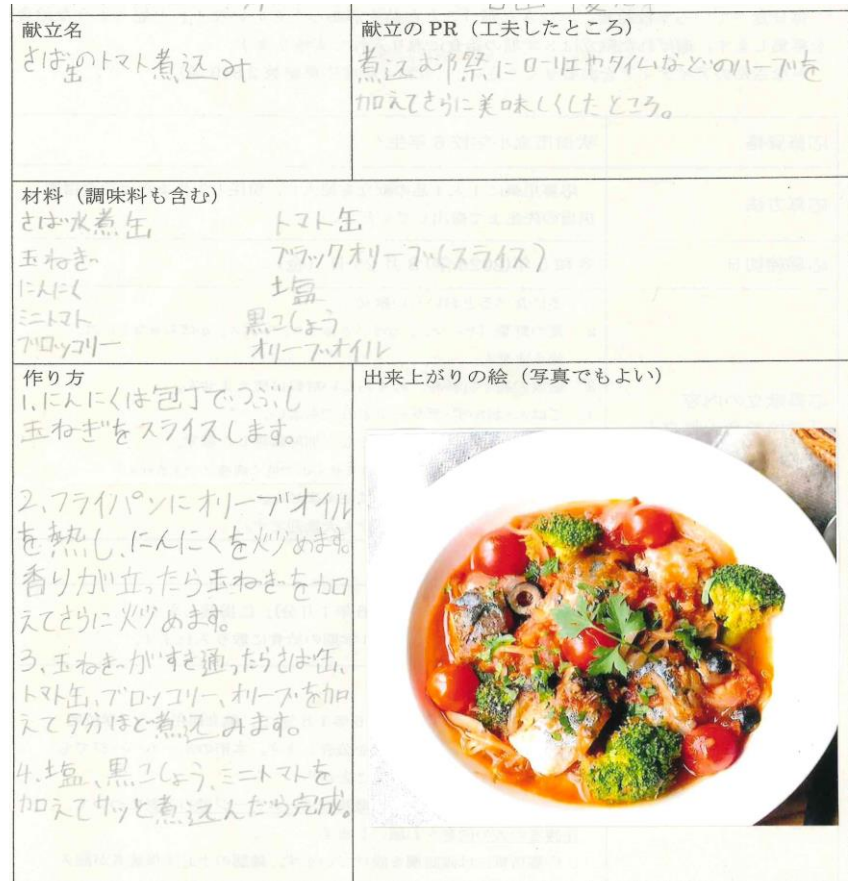 献立名
さば缶のトマト煮込み
献立の PR（工夫したところ）
煮込む祭にローリエやタイムなどのハーブを
加えてさらに美味しくしたところ。
材料（調味料も含む）
さば水煮缶
玉ねぎ
にんにく
ミニトマト
ブロッコリー
トマト缶
ブラックオリーブ(スライス)
塩
黒こしょう
オリーブオイル
作り方
1、にんにくは包丁でつぶし
玉ねぎをスライスします。
2、フライパンにオリーブオイル
を熱し、にんにくを炒めます。
香りが立ったら玉ねぎを加
えてさらに炒めます。
3、玉ねぎがすき通ったらさば缶、
トマト缶、ブロッコリー、オリーブを加
えて5分ほど煮込みます。
4、塩、黒こしょう、ミニトマトを
加えてサッと煮込んだら完成。
出来上がりの絵（写真でもよい）